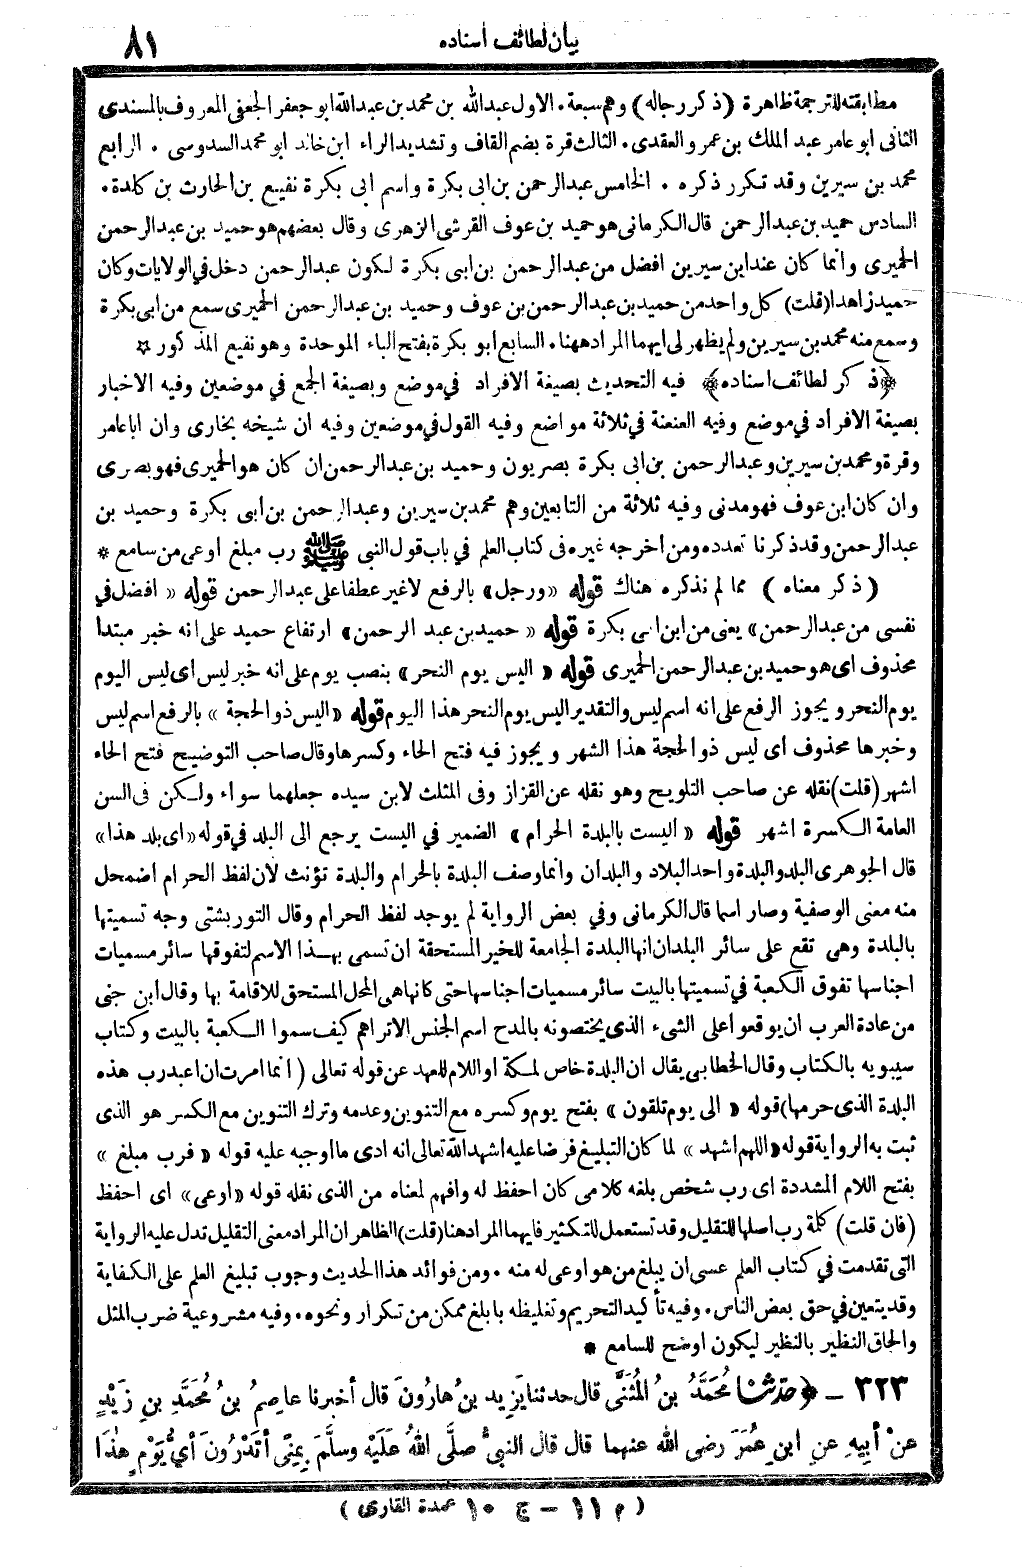 بيان لطائف أسناده
٨١
مطابقته للترجمة ظاهرة (ذكر رجاله) وهم سبعة. الاول عبدالله بن محمد بن عبدالله ابو جعفر الجعفى المعروف بالمسندى
الثانى ابو عامر عبد الملك بن عمرو العقدى. الثالث قرة بضم القاف وتشديد الراء ابن خالد ابو محمد السدوسى . الرابع
محمد بن سيرين وقد تكرر ذكره . الخامس عبدالرحمن بن ابى بكرة واسم ابى بكرة نفيع بن الحارث بن كلدة.
السادس حميد بن عبدالرحمن قال الكرمانى هو حميد بن عوف القرشى الزهرى وقال بعضهم هو حميد بن عبدالرحمن
الحميرى وانما كان عند ابن سيرين افضل من عبدالرحمن بن ابى بكرة لكون عبدالرحمن دخل في الولايات وكان
حميد زاهدا (قلت) كل واحد من حميد بن عبدالرحمن بن عوف وحميد بن عبدالرحمن الحميرى سمع من ابى بكرة
وسمع منه محمد بن سيرين ولم يظهر لى ايهما المراد ههنا. السابع ابو بكرة بفتح الباء الموحدة وهو نفيع المذكور ☆
﴿ذكر لطائف اسناده﴾ فيه التحديث بصيغة الافراد في موضع وبصيغة الجمع في موضعين وفيه الاخبار
بصيغة الافراد في موضع وفيه العنعنة في ثلاثة مواضع وفيه القول في موضعين وفيه ان شيخه بخارى وان اباعامر
وقرة ومحمد بن سيرين وعبدالرحمن بن ابى بكرة بصريون وحميد بن عبدالرحمن ان كان هو الحميرى فهو بصرى
وان كان ابن عوف فهو مدنى وفيه ثلاثة من التابعين وهم محمد بن سيرين وعبدالرحمن بن أبى بكرة وحميد بن
عبدالرحمن وقد ذكرنا تعدده ومن اخرجه غيره فى كتاب العلم في باب قول النبى ﷺ رب مبلغ أوعى من سامع *
(ذكر معناه) مما لم نذكره هناك قوله «ورجل» بالرفع لا غير عطفا على عبدالرحمن قوله « افضل في
نفسى من عبدالرحمن» يعنى من ابن ابى بكرة قوله « حميد بن عبد الرحمن» ارتفاع حميد على انه خبر مبتدأ
محذوف اى هو حميد بن عبدالرحمن الحميرى قوله « اليس يوم النحر» بنصب يوم على انه خبر ليس اى ليس اليوم
يوم النحر ويجوز الرفع على انه اسم ليس والتقدير اليس يوم النحر هذا اليوم قوله «اليس ذو الحجة » بالرفع اسم ليس
وخبرها محذوف اى ليس ذو الحجة هذا الشهر ويجوز فيه فتح الحاء وكسرها وقال صاحب التوضيح فتح الحاء
اشهر (قلت) نقله عن صاحب التلويح وهو نقله عن القزاز وفى المثلث لابن سيده جعلهما سواء ولكن فى السن
العامة الكسرة اشهر قوله « اليست بالبلدة الحرام» الضمير في اليست يرجع الى البلد في قوله «اى بلد هذا»
قال الجوهرى البلد والبلدة واحد البلاد والبلدان وانما وصف البلدة بالحرام والبلدة تؤنث لان لفظ الحرام اضمحل
منه معنى الوصفية وصار اسما قال الكرمانى وفي بعض الرواية لم يوجد لفظ الحرام وقال التوربشتى وجه تسميتها
بالبلدة وهى تقع على سائر البلدان انها البلدة الجامعة للخير المستحقة ان تسمى بهذا الاسم لتفوقها سائر مسميات
اجناسها تفوق الكعبة في تسميتها بالبيت سائر مسميات اجناسها حتى كانها هى المحل المستحق للاقامة بها وقال ابن جنى
من عادة العرب ان يوقعوا على الشىء الذى يختصونه بالمدح اسم الجنس الا تراهم كيف سموا الكعبة بالبيت وكتاب
سيبويه بالكتاب وقال الخطابى يقال ان البلدة خاص لمكة او اللام للعهد عن قوله تعالى ( انما امرت ان اعبد رب هذه
البلدة الذى حرمها) قوله « الى يوم تلقون » بفتح يوم وكسره مع التنوين وعدمه وترك التنوين مع الكسر هو الذى
ثبت به الرواية قوله «اللهم اشهد » لما كان التبليغ فرضا عليه اشهد الله تعالى انه ادى ما اوجبه عليه قوله « فرب مبلغ »
بفتح اللام المشددة اى رب شخص بلغه كلامى كان احفظ له وافهم لمعناه من الذى نقله قوله «اوعى» اى احفظ
(فان قلت) كلمة رب اصلها للتقليل وقد تستعمل للتكثير فايهما المراد هنا (قلت) الظاهر ان المراد معنى التقليل تدل عليه الرواية
التى تقدمت في كتاب العلم عسى ان يبلغ من هو اوعى له منه . ومن فوائد هذا الحديث وجوب تبليغ العلم على الكفاية
وقد يتعين في حق بعض الناس. وفيه تأكيد التحريم وتغليظه بابلغ ممكن من تكرار ونحوه. وفيه مشروعية ضرب المثل
والحاق النظير بالنظير ليكون اوضح للسامع *
٣٢٣ – ﴿حدثنا مُحَمَّدُ بنُ المُثَنَّى قال حدثنا يَزِيدُ بنُ هارُونَ قال أخبرنا عاصِمُ بنُ مُحَمَّدِ بنِ زَيْدٍ
عنْ أبِيهِ عنِ ابنِ عُمَرَ رضى الله عنهما قال قال النبىُّ صلَّى اللهُ عَلَيْهِ وسلَّمَ بِمِنًى أتَدْرُونَ أىُّ يَوْمٍ هٰذَا
(م ١١ – ج ١٠ عمدة القارى)